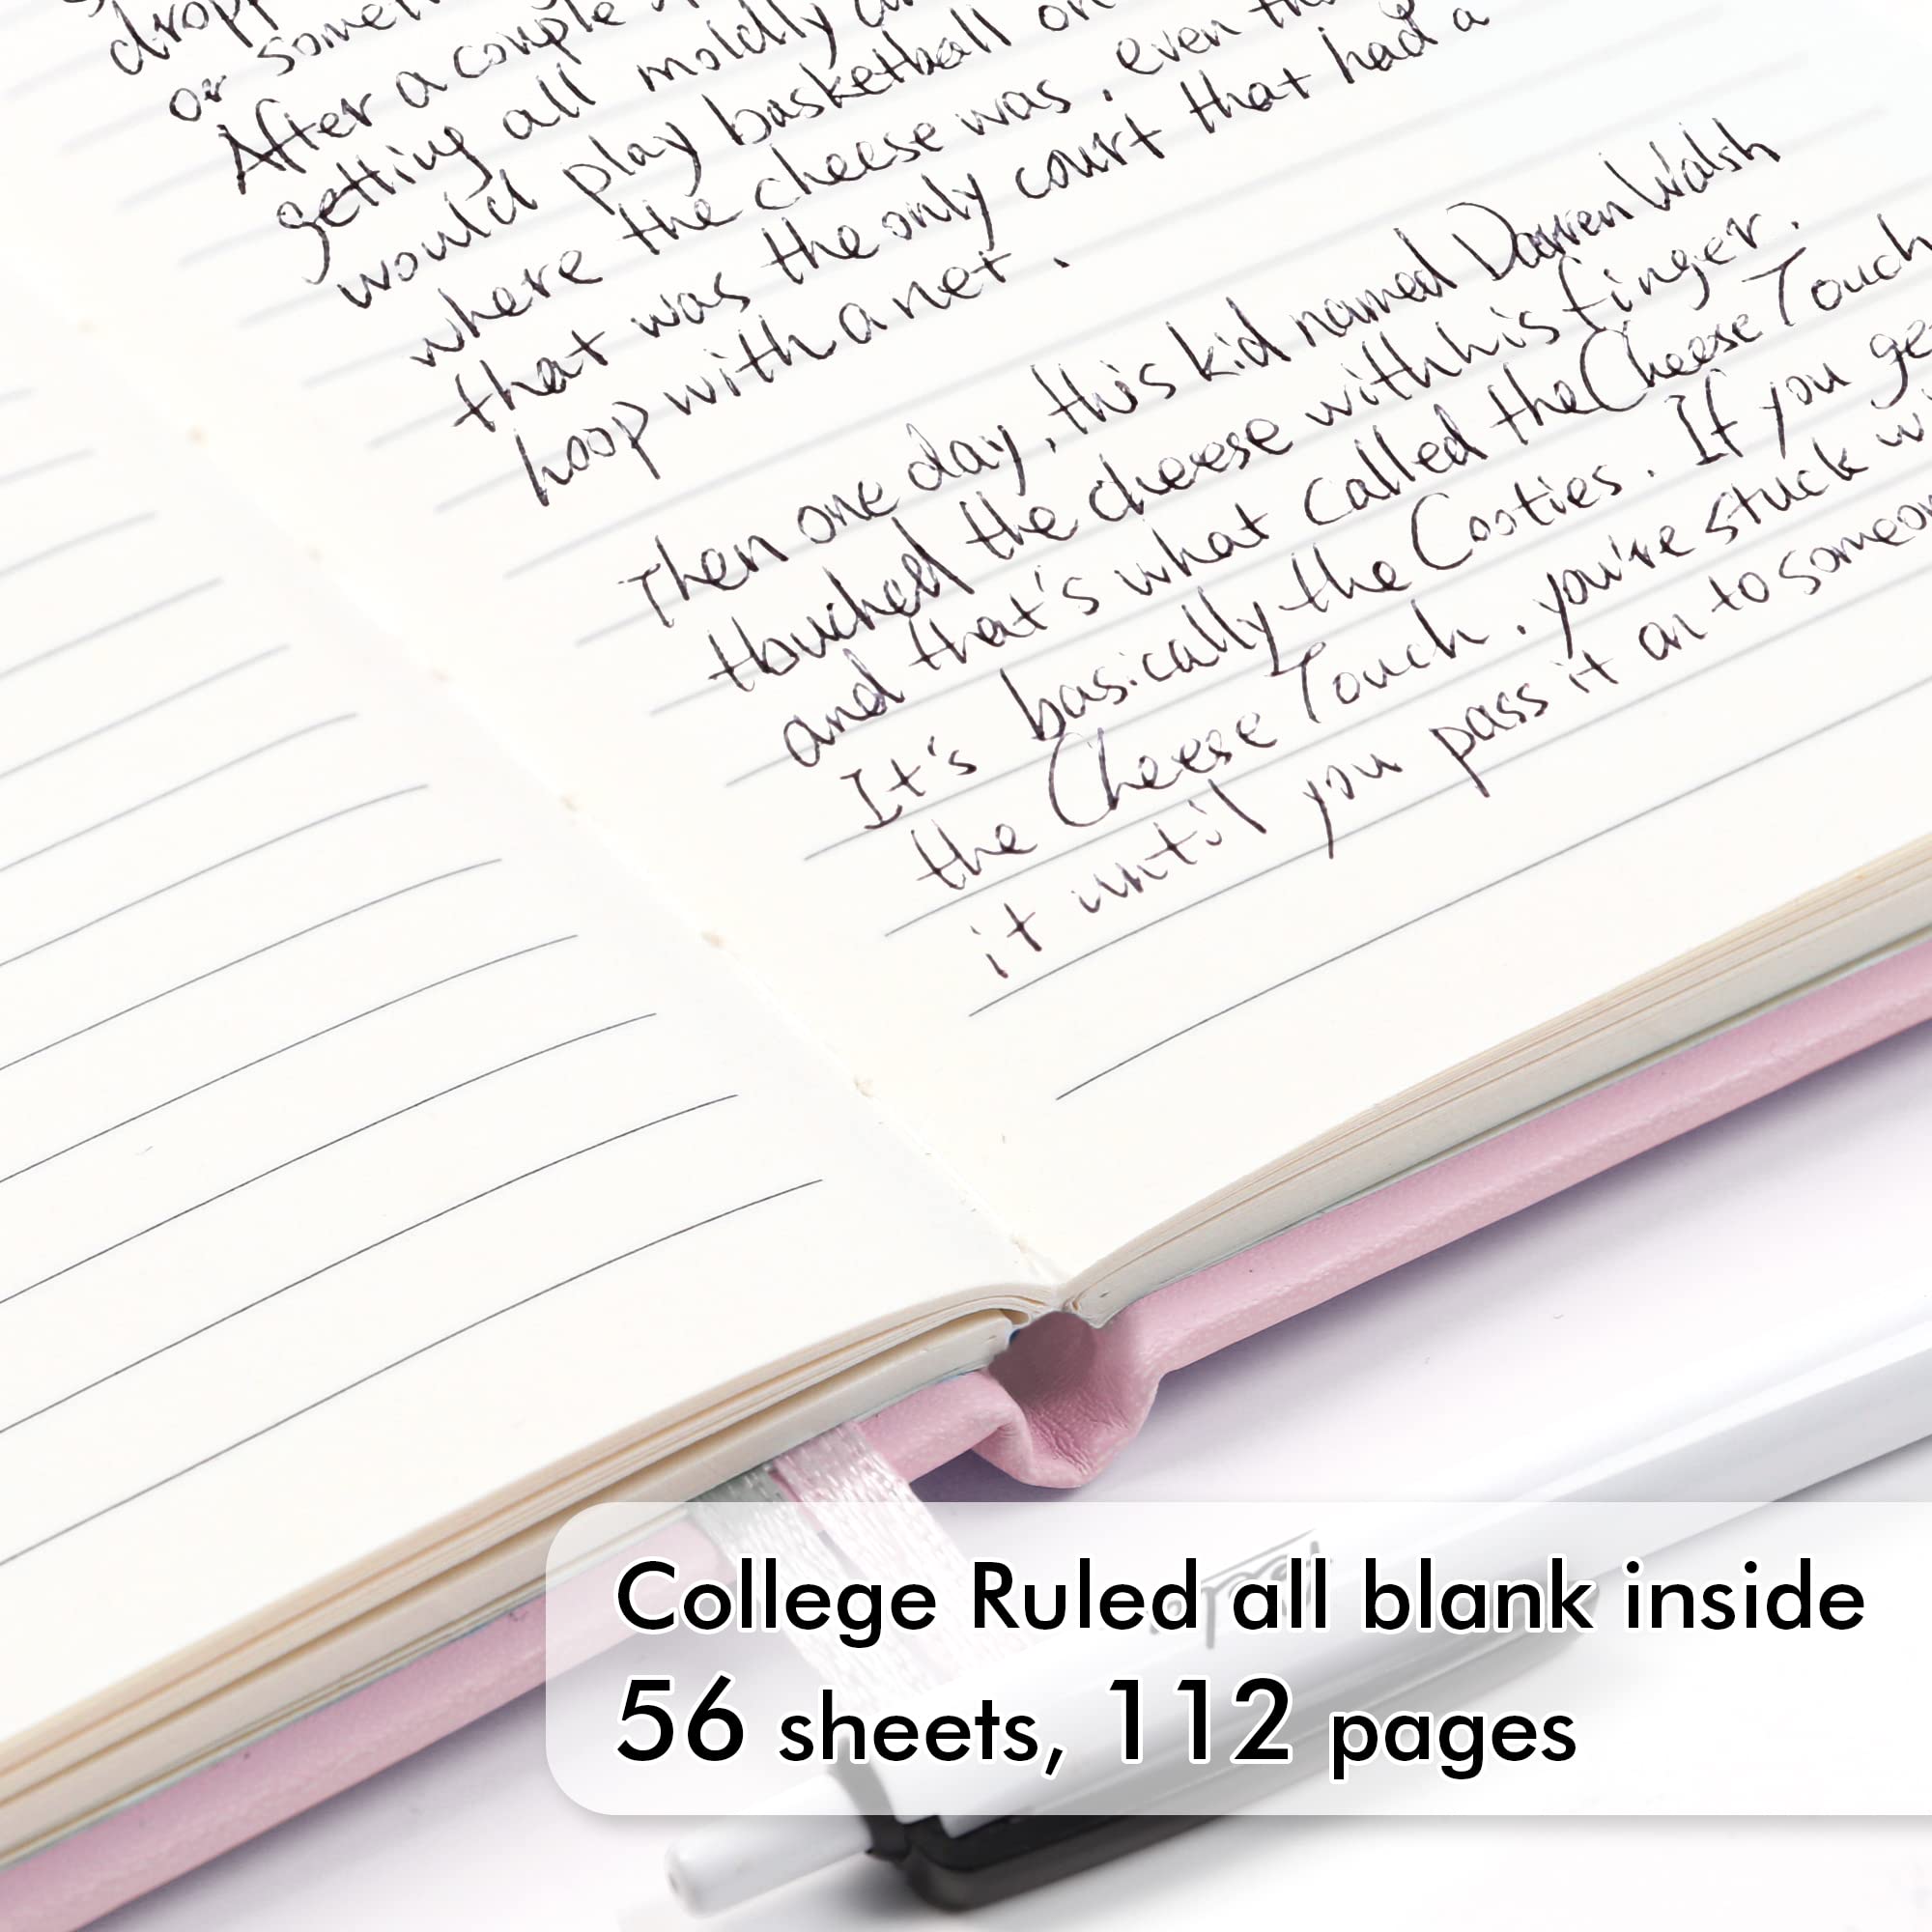 or
After a couple
getting all moldy
would play basketball on
where the cheese was, even
that was the only court that had a
hoop with a net.
Then one day, this kid named Darren Walsh
touched the cheese with his finger.
and that's what called the Cheese Touch
It's basically the Cooties. If you
the Cheese Touch. you're stuck
it until you pass it on to
College Ruled all blank inside
56 sheets, 112 pages